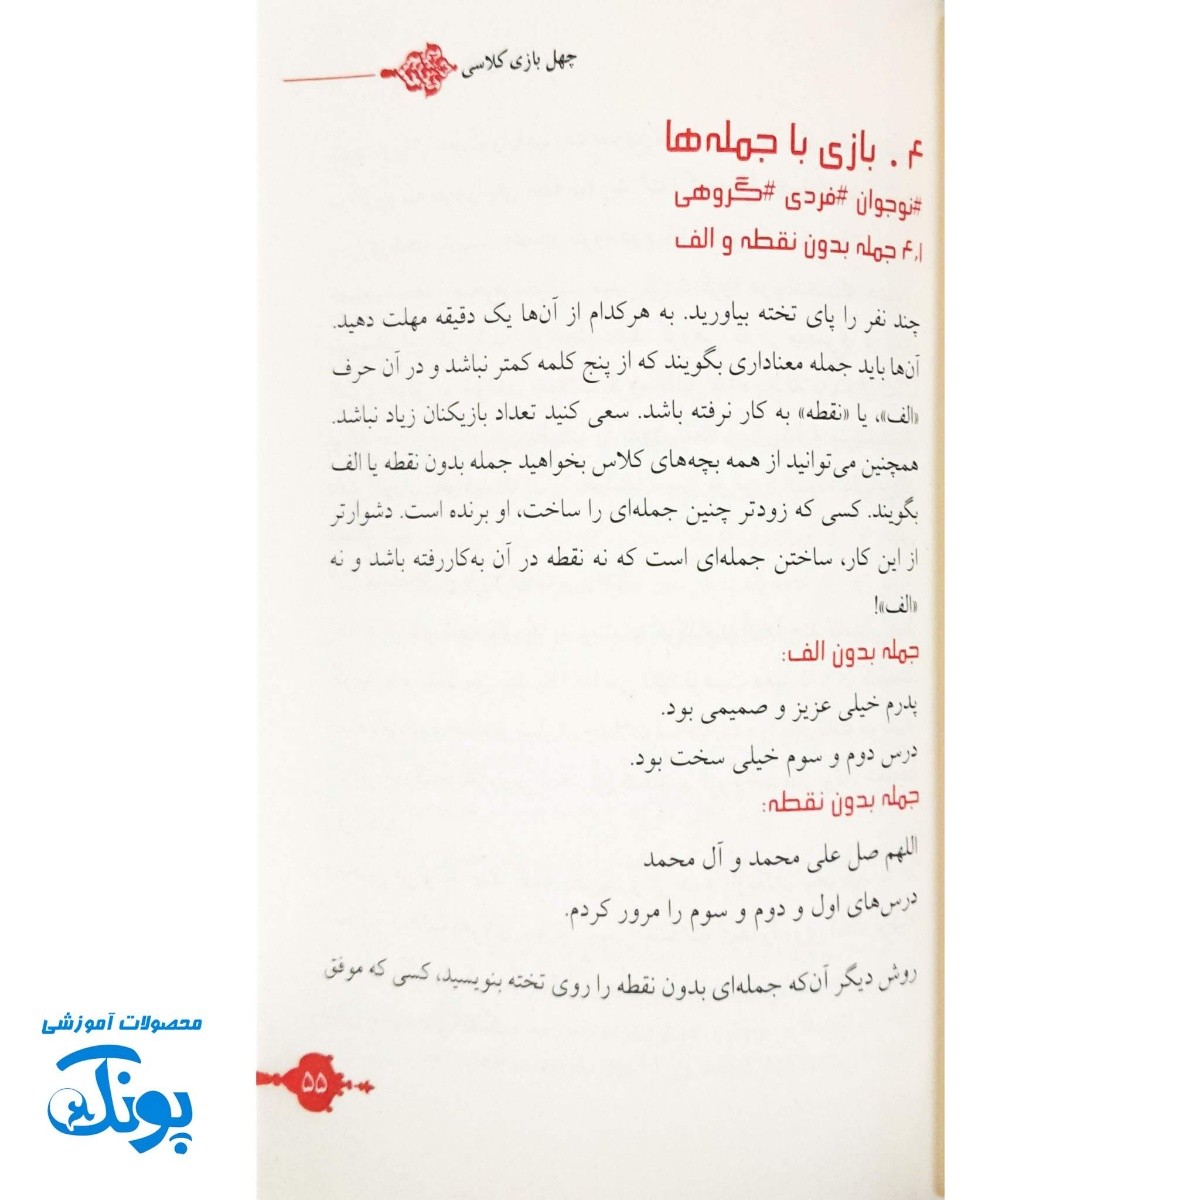 چهل بازی کلاسی
۴. بازی با جمله‌ها
#نوجوان #فردی #گروهی
۴٫۱ جمله بدون نقطه و الف
چند نفر را پای تخته بیاورید. به هرکدام از آن‌ها یک دقیقه مهلت دهید.
آن‌ها باید جمله معناداری بگویند که از پنج کلمه کمتر نباشد و در آن حرف
«الف»، یا «نقطه» به کار نرفته باشد. سعی کنید تعداد بازیکنان زیاد نباشد.
همچنین می‌توانید از همه بچه‌های کلاس بخواهید جمله بدون نقطه یا الف
بگویند. کسی که زودتر چنین جمله‌ای را ساخت، او برنده است. دشوارتر
از این کار، ساختن جمله‌ای است که نه نقطه در آن به‌کاررفته باشد و نه
«الف»!
جمله بدون الف:
پدرم خیلی عزیز و صمیمی بود.
درس دوم و سوم خیلی سخت بود.
جمله بدون نقطه:
اللهم صل علی محمد و آل محمد
درس‌های اول و دوم و سوم را مرور کردم.
روش دیگر آن‌که جمله‌ای بدون نقطه را روی تخته بنویسید، کسی که موفق
۵۵
محصولات آموزشی
پونک